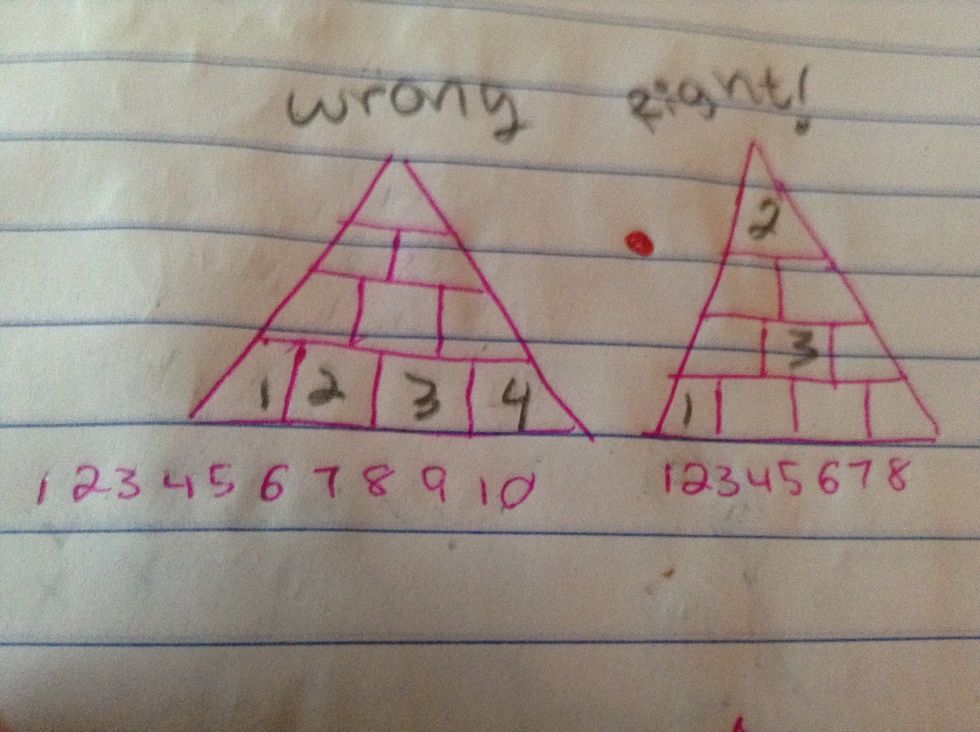 wrong Right!
2
3
1 2 3 4 1
1 2 3 4 5 6 7 8 9 10 1 2 3 4 5 6 7 8